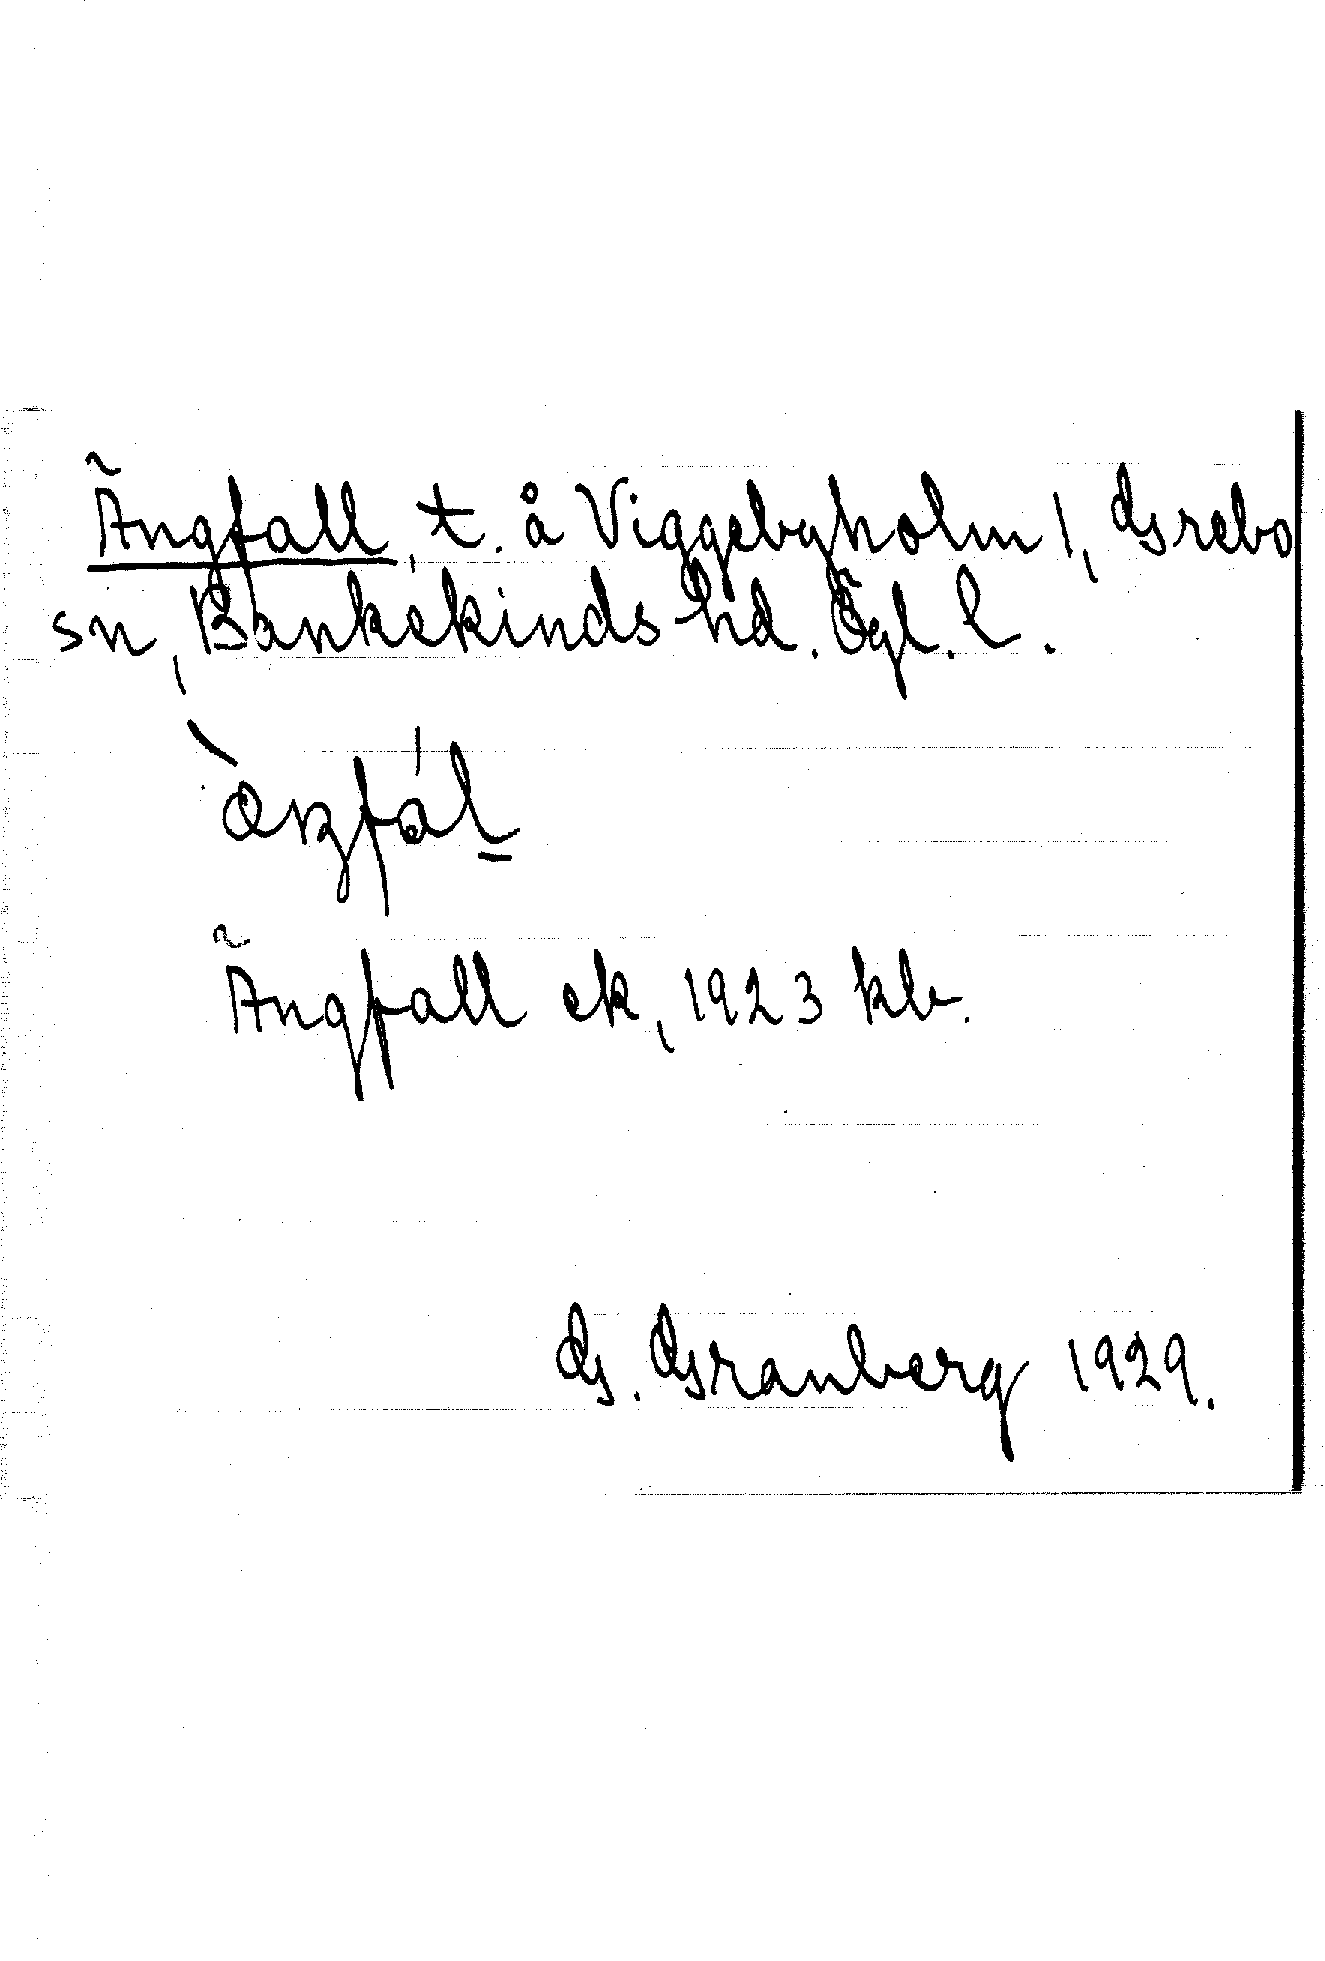 Ängfall, t. å Viggebyholm 1, Grebo
sn, Bankekinds hd. Ögl. l.
Ängfall ek, 1923 kb.
G. Granberg 1929.